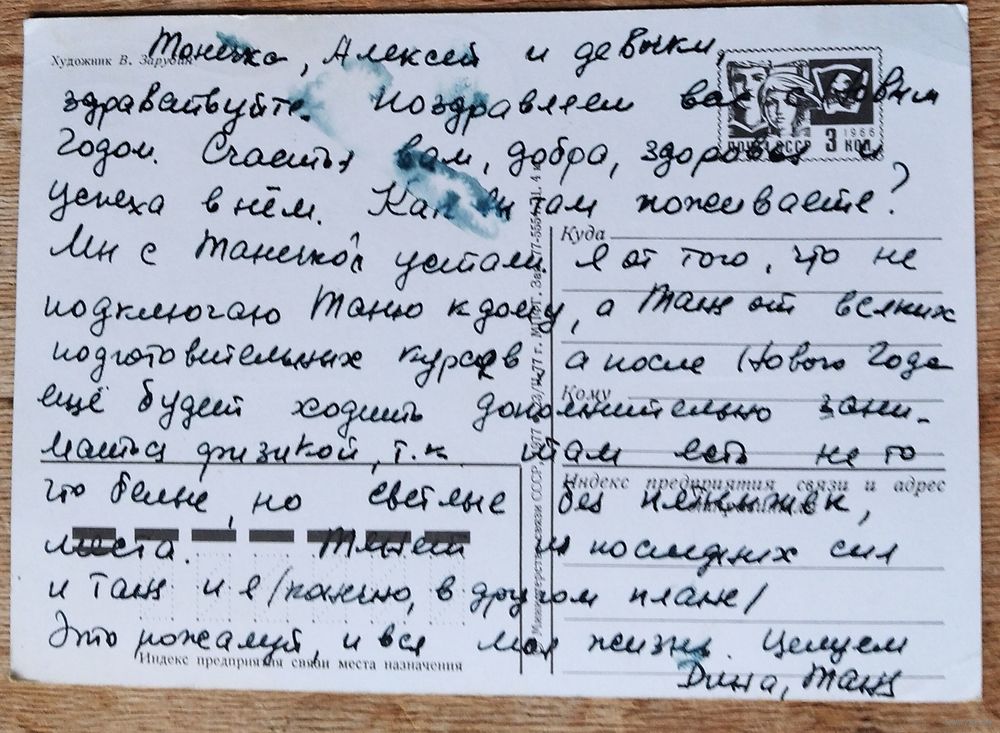 Художник В. Зарубин
Танечка, Алексей и девочки,
здравствуйте. Поздравляем вас с Новым
Годом. Счастья вам, добра, здоровья и
успеха в нём. Как вы там поживаете?
Мы с Танечкой устали. Я от того, что не
подключаю Таню к дому, а Таня от всяких
подготовительных курсов а после Нового Года
ещё будет ходить дополнительно зани-
маться физикой, т.к. там есть не то
что белые, но светлые без
места. Тянем из последних сил
и Таня и я /конечно, в другом плане/
Это, пожалуй, и вся моя жизнь. Целуем
Дина, Таня
ПОЧТА СССР 3 КОП 1966
Куда
Кому
Индекс предприятия связи и адрес
Индекс предприятия связи места назначения
Министерство связи СССР, 1977